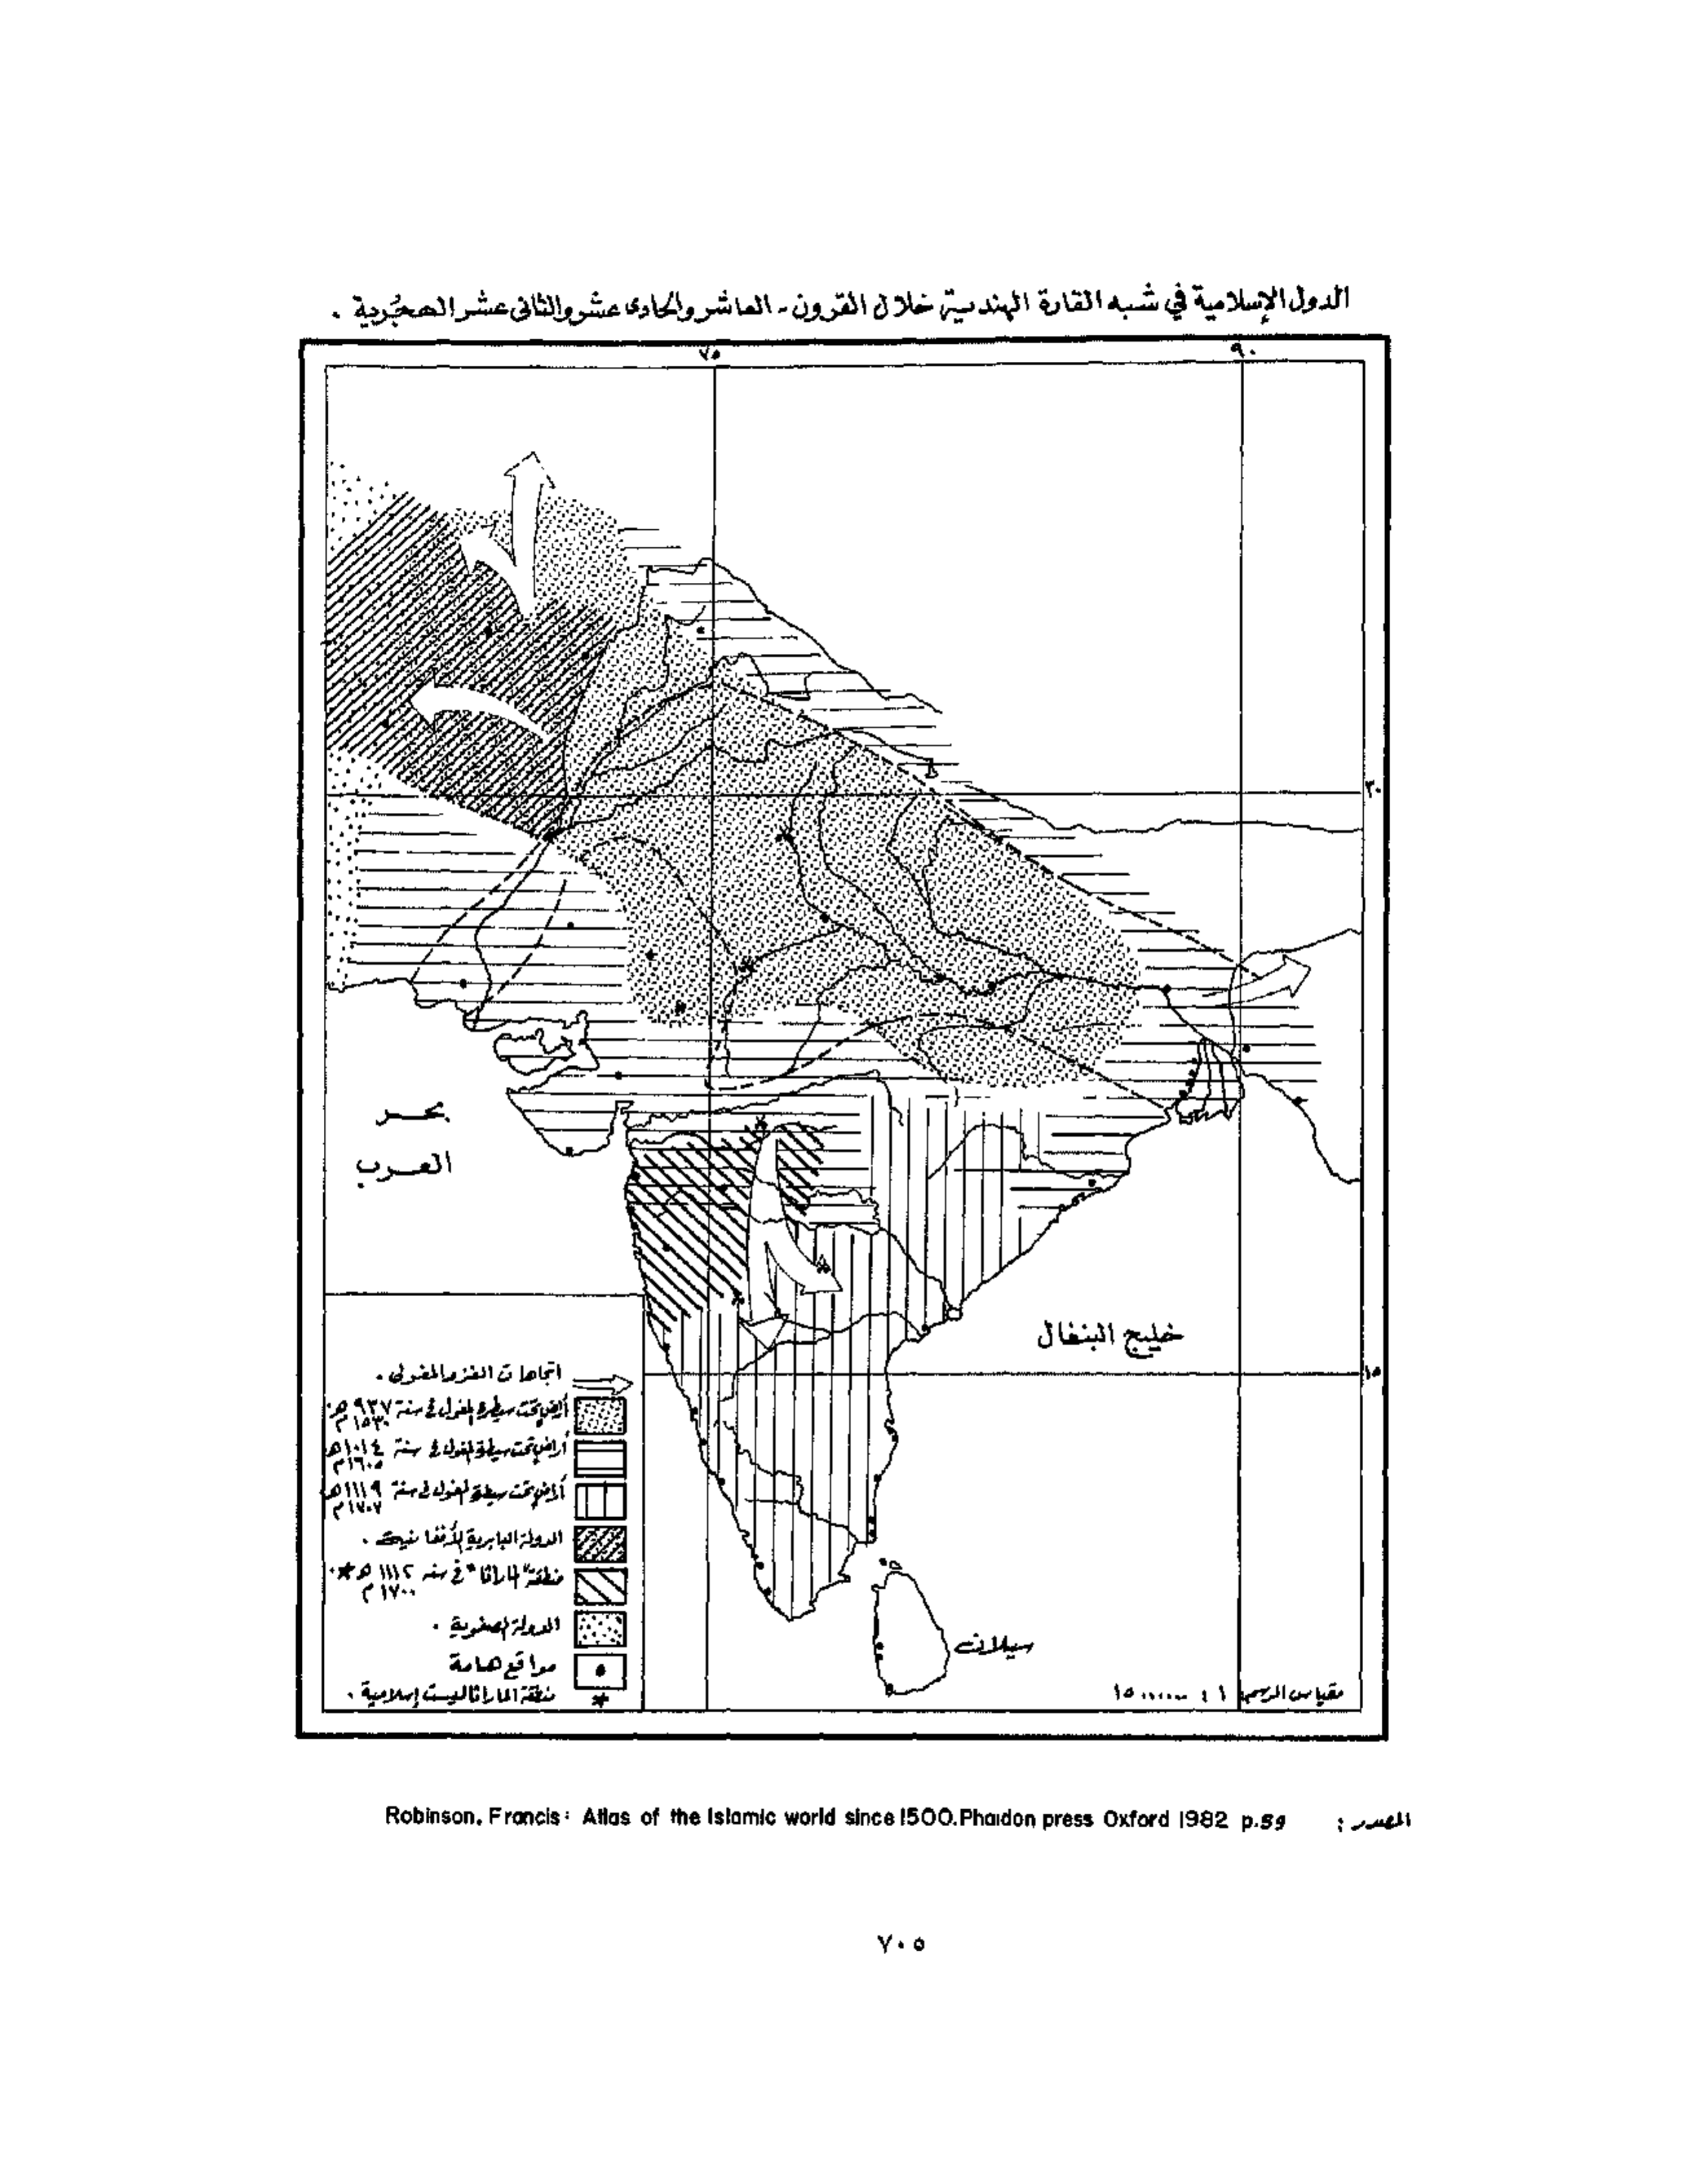 الدول الإسلامية في شبه القارة الهندية خلال القرون - العاشر والحادى عشر والثانى عشر الهجرية .
٧٥
٩٠
٣٠
بحر
العرب
خليج البنغال
١٥
اتجاهات الغزو المغولى .
أراض تحت سيطرة المغول في سنة ٩٣٧ هـ
١٥٣٠ م
أراض تحت سيطرة المغول في سنة ١٠١٤ هـ
١٦٠٥ م
أراض تحت سيطرة المغول في سنة ١١١٩ هـ
١٧٠٧ م
الدولة البابرية الأفغانية .
منطقة "الماراثا" في سنة ١١١٢ هـ *
١٧٠٠ م
الدولة الصفوية .
مواقع هامة
* منطقة الماراثا ليست إسلامية .
سيلان
مقياس الرسم ١ : ١٥٠٠٠٠٠٠
المصدر : Robinson, Francis: Atlas of the Islamic world since 1500. Phaidon press Oxford 1982 p.59
٧٠٥